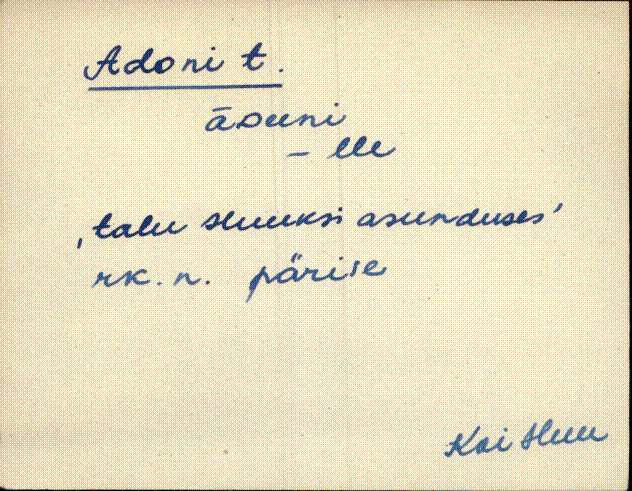 Adoni t.
āDuni
– lle
‚talu Huuksi asunduses’
rk. n. pärise
Kai Huu